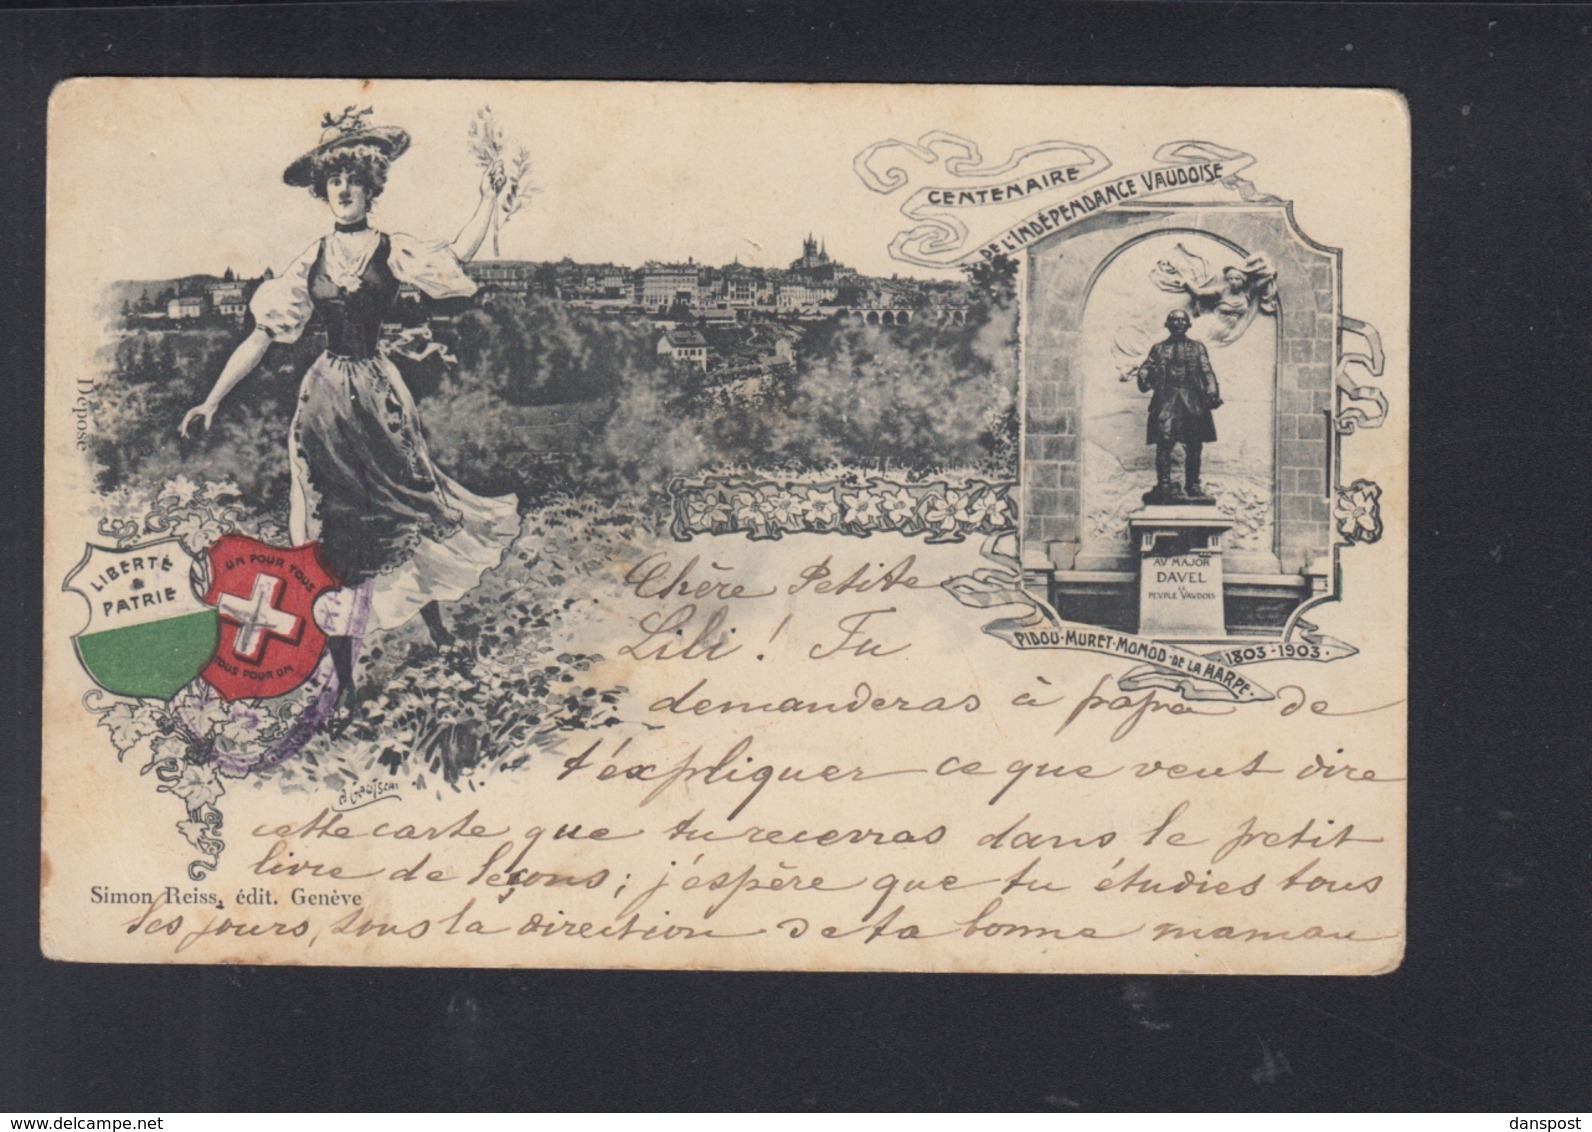 CENTENAIRE
DE L'INDÉPENDANCE VAUDOISE
Déposé
LIBERTÉ
&
PATRIE
UN POUR TOUS
TOUS POUR UN
AV MAJOR
DAVEL
LE
PEVPLE VAVDOIS
PIDOU-MURET-MONOD-DE LA HARPE.
1803-1903.
Chère Petite
Lili! Tu
demanderas à papa de
t'expliquer ce que veut dire
cette carte que tu recevras dans le petit
livre de leçons; j'espère que tu étudies tous
Simon Reiss, édit. Genève
les jours, sous la direction de ta bonne maman
danspost